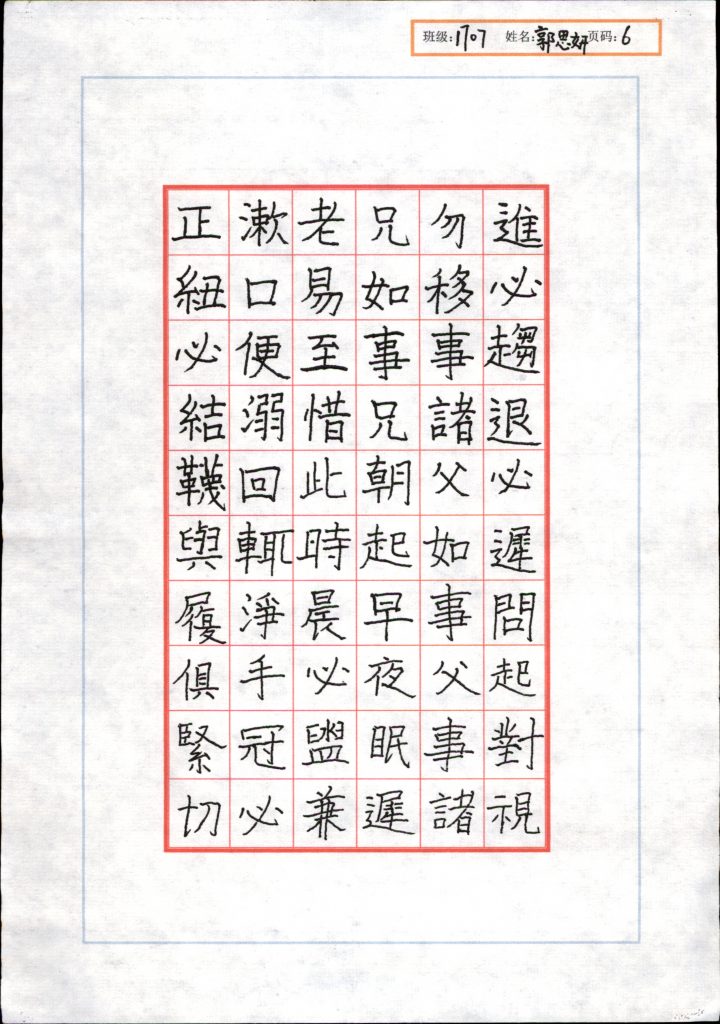 班级:1707 姓名:郭思妍 页码:6
進必趨退必遲問起對視
勿移事諸父如事父事諸
兄如事兄朝起早夜眠遲
老易至惜此時晨必盥兼
漱口便溺回輒淨手冠必
正紐必結韈與履俱緊切